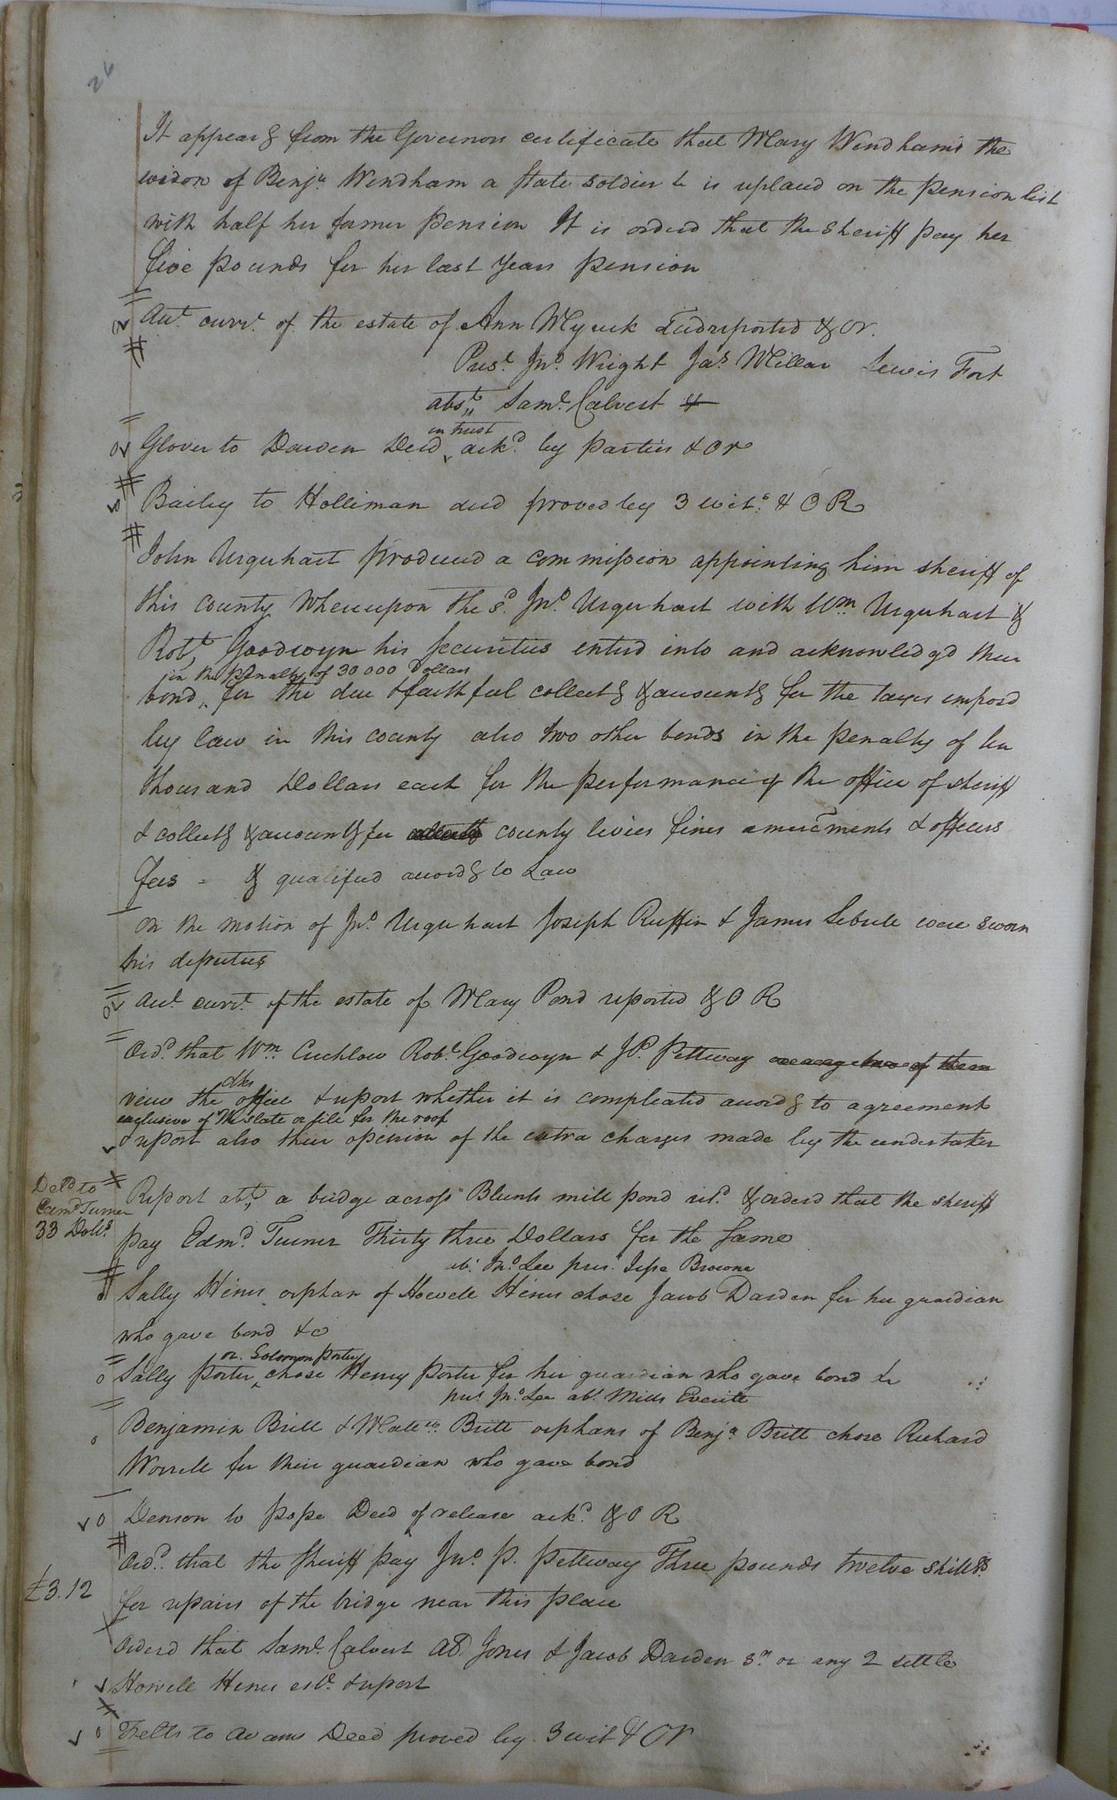 26
It appearg from the Governors certificate that Mary Windham's the
widow of Benjn Windham a state soldier &c is uplaced on the pension list
with half her former pension It is orderd that the sheriff pay her
five pounds for her last years pension
Act. curr.t of the estate of Ann Myrick Indr reported & Or.
Prest Jno. Wright Jas Millar Lewis Fort
abst. Saml. Calvert
in trust
Glover to Darden Deed ackd. by parties & Or
Bailey to Holliman deed proved by 3 wits. & O R
John Urquhart produced a commission appointing him sheriff of
this county Whereupon the sd. Jno Urquhart with Wm Urquhart &
Robt. Goodwyn his securities enterd into and acknowledg'd their
in the penalty of 30 000 Dollars
bond, for the due & faithful collectg & accountg for the taxes imposd
by law in this county also two other bonds in the penalty of ten
thousand Dollars each for the performance of the office of sheriff
& collectg & accountg for county levies fines amercements & officers
fees - & qualified accordg to Law
On the motion of Jno. Urquhart Joseph Ruffin & James Sebrell were sworn
his deputies
Act. curr.t of the estate of Mary Pond reported & O R
Ord. that Wm Crichlow Robt. Goodwyn & J.P. Pettway or any two of them
clks
view the office & report whether it is compleated accordg to agreement
exclusive of the slate or tile for the roof
& report also their opinion of the extra charges made by the undertaker
Deld to
Edmd Turner
33 Dolls
Report abt. a bridge across Blunts mill pond retd. & orderd that the sheriff
pay Edmd. Turner Thirty three Dollars for the same
ab. Jno. Lee pres. Jesse Browne
Sally Hines orphan of Howell Hines chose Jacob Darden for her guardian
who gave bond &c
or. Solomon Porter
Sally Porter, chose Henry Porter for her guardian who gave bond &c
pres. Jno. Lee abt. Mills Everitt
Benjamin Britt & Britt orphans of Benja. Britt chose Richard
Worrell for their guardian who gave bond
Denson to Pope Deed of release ackd. & O R
Ord. that the Sheriff pay Jno P. Pettway Three pounds twelve shillgs
£3.12
for repairs of the bridge near this place
Orderd that Saml. Calvert AB. Jones & Jacob Darden Sr or any 2 settle
Howell Hines est. & report
Felts to Adams Deed proved by 3 wit & Or